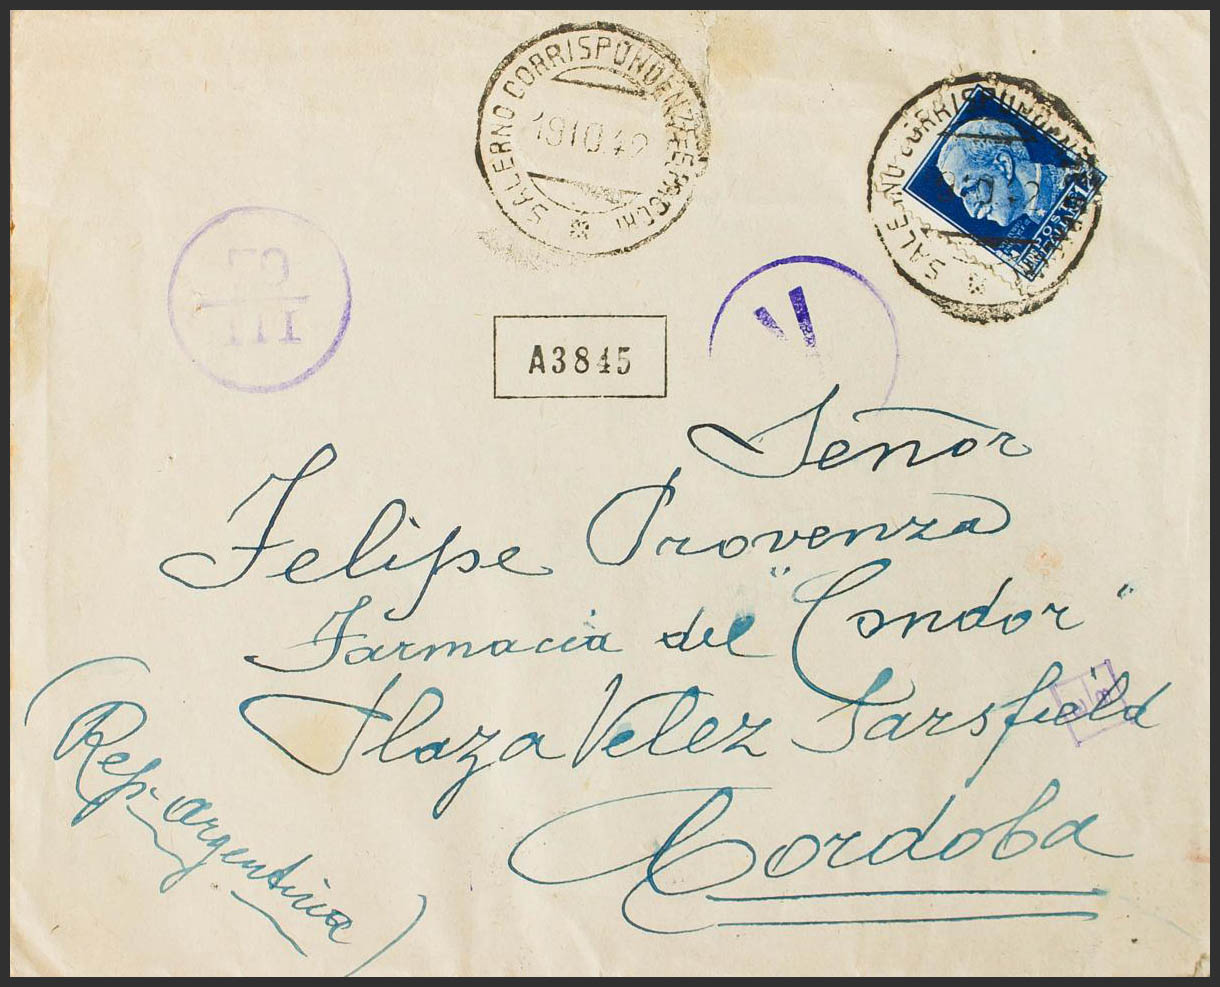 SALERNO CORRISPONDENZE E PACCHI
19 10.42
SALERNO CORRISPOND
POSTE
A3845
Señor
Felipe Provenza
Farmacia del "Condor"
Plaza Velez Sarsfield
Cordoba
(Rep. Argentina)